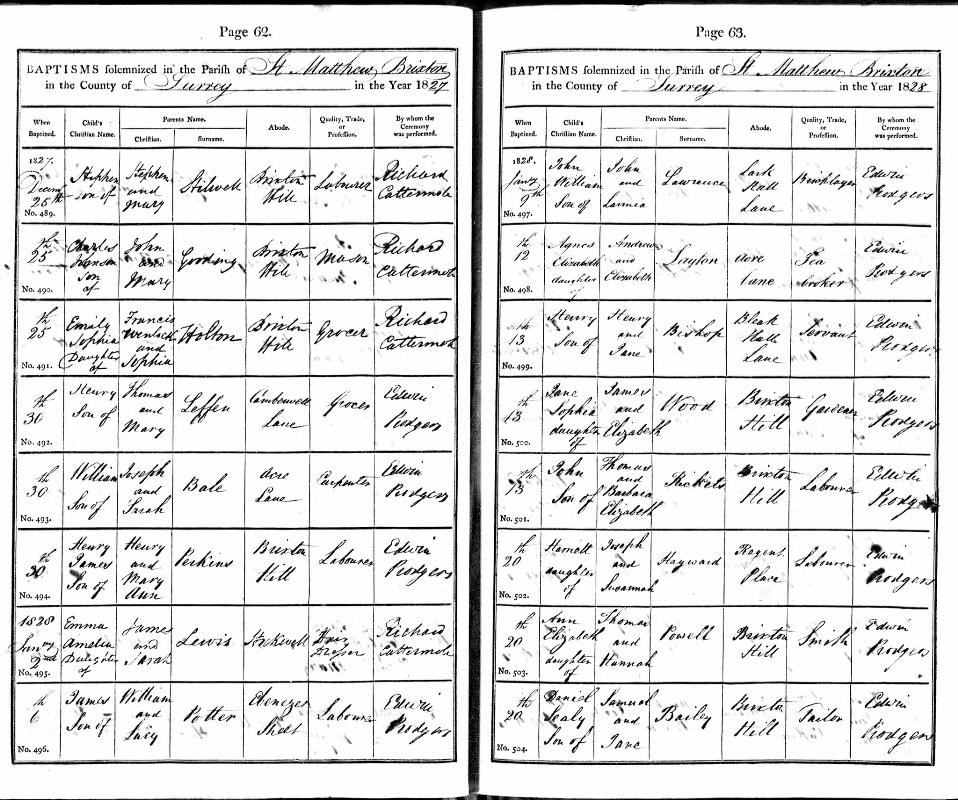 Page 62.
BAPTISMS solemnized in the Parish of St Matthew, Brixton
in the County of Surrey in the Year 1827
When Baptized. Child's Christian Name. Parents Name. Christian. Surname. Abode. Quality, Trade, or Profession. By whom the Ceremony was performed.
1827. Decemr 25th No. 489. Stephen son of Stephen and Mary Stilwell Brixton Hill Labourer Richard Cattermole
25th No. 490. Charles Johnson Son of John and Mary Gooding Brixton Hill Mason Richard Cattermole
25th No. 491. Emily Sophia Daughter of Francis Wenlock and Sophia Holton Brixton Hill Grocer Richard Cattermole
30th No. 492. Henry Son of Thomas and Mary Leffen Camberwell Lane Grocer Edwin Prodgers
30th No. 493. William Son of Joseph and Sarah Bale Acre Lane Carpenter Edwin Prodgers
30th No. 494. Henry James Son of Henry and Mary Ann Perkins Brixton Hill Labourer Edwin Prodgers
1828 Jany 2nd No. 495. Emma Amelia Daughter of James and Sarah Lewis Stockwell Hair Dresser Richard Cattermole
6th No. 496. James Son of William and Lucy Potter Ebenezer Street Labourer Edwin Prodgers
Page 63.
BAPTISMS solemnized in the Parish of St Matthew Brixton
in the County of Surrey in the Year 1828
When Baptized. Child's Christian Name. Parents Name. Christian. Surname. Abode. Quality, Trade, or Profession. By whom the Ceremony was performed.
1828. Jany 9th No. 497. John William Son of John and Lawrence Lark Hall Lane Edwin Prodgers
12th No. 498. Agnes Elizabeth daughter of Andrew and Elizabeth Layton Acre Lane Tea broker Edwin Prodgers
13th No. 499. Henry Son of Henry and Jane Bishop Bleak Hall Lane Servant Edwin Prodgers
13th No. 500. Jane Sophia daughter of James and Elizabeth Wood Brixton Hill Gardener Edwin Prodgers
13th No. 501. John Son of Thomas and Barbara Elizabeth Rickets Brixton Hill Labourer Edwin Prodgers
20th No. 502. Harriett daughter of Joseph and Susannah Hayward Regent Place Labourer Edwin Prodgers
20th No. 503. Ann Elizabeth daughter of Thomas and Hannah Powell Brixton Hill Smith Edwin Prodgers
20th No. 504. Daniel Sealy Son of Samuel and Jane Bailey Brixton Hill Tailor Edwin Prodgers